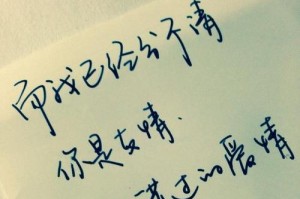 而我已经分不清
你是友情.
错过的爱情